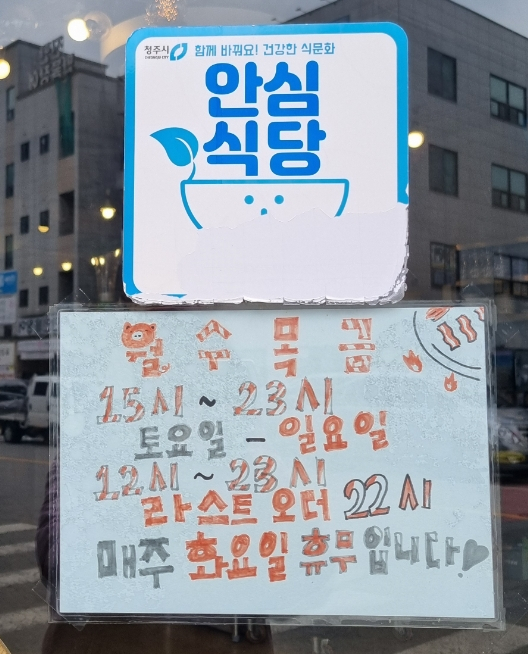 청주시
함께 바꿔요! 건강한 식문화
안심
식당
월 수 목 금
15시 ~ 23시
토요일 - 일요일
12시 ~ 23시
라스트 오더 22시
매주 화요일 휴무입니다♥